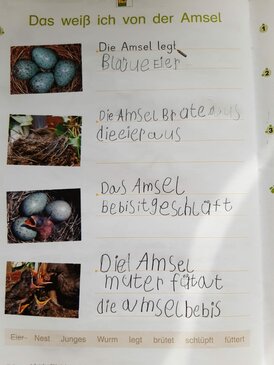 Das weiß ich von der Amsel
Die Amsel legt
Blaue Eier
Die Amsel Brütet
die eier aus
Das Amsel
bebi sit geschlüft
Die Amsel
muter fütat
die amselbebis
Eier Nest Junges Wurm legt brütet schlüpft füttert